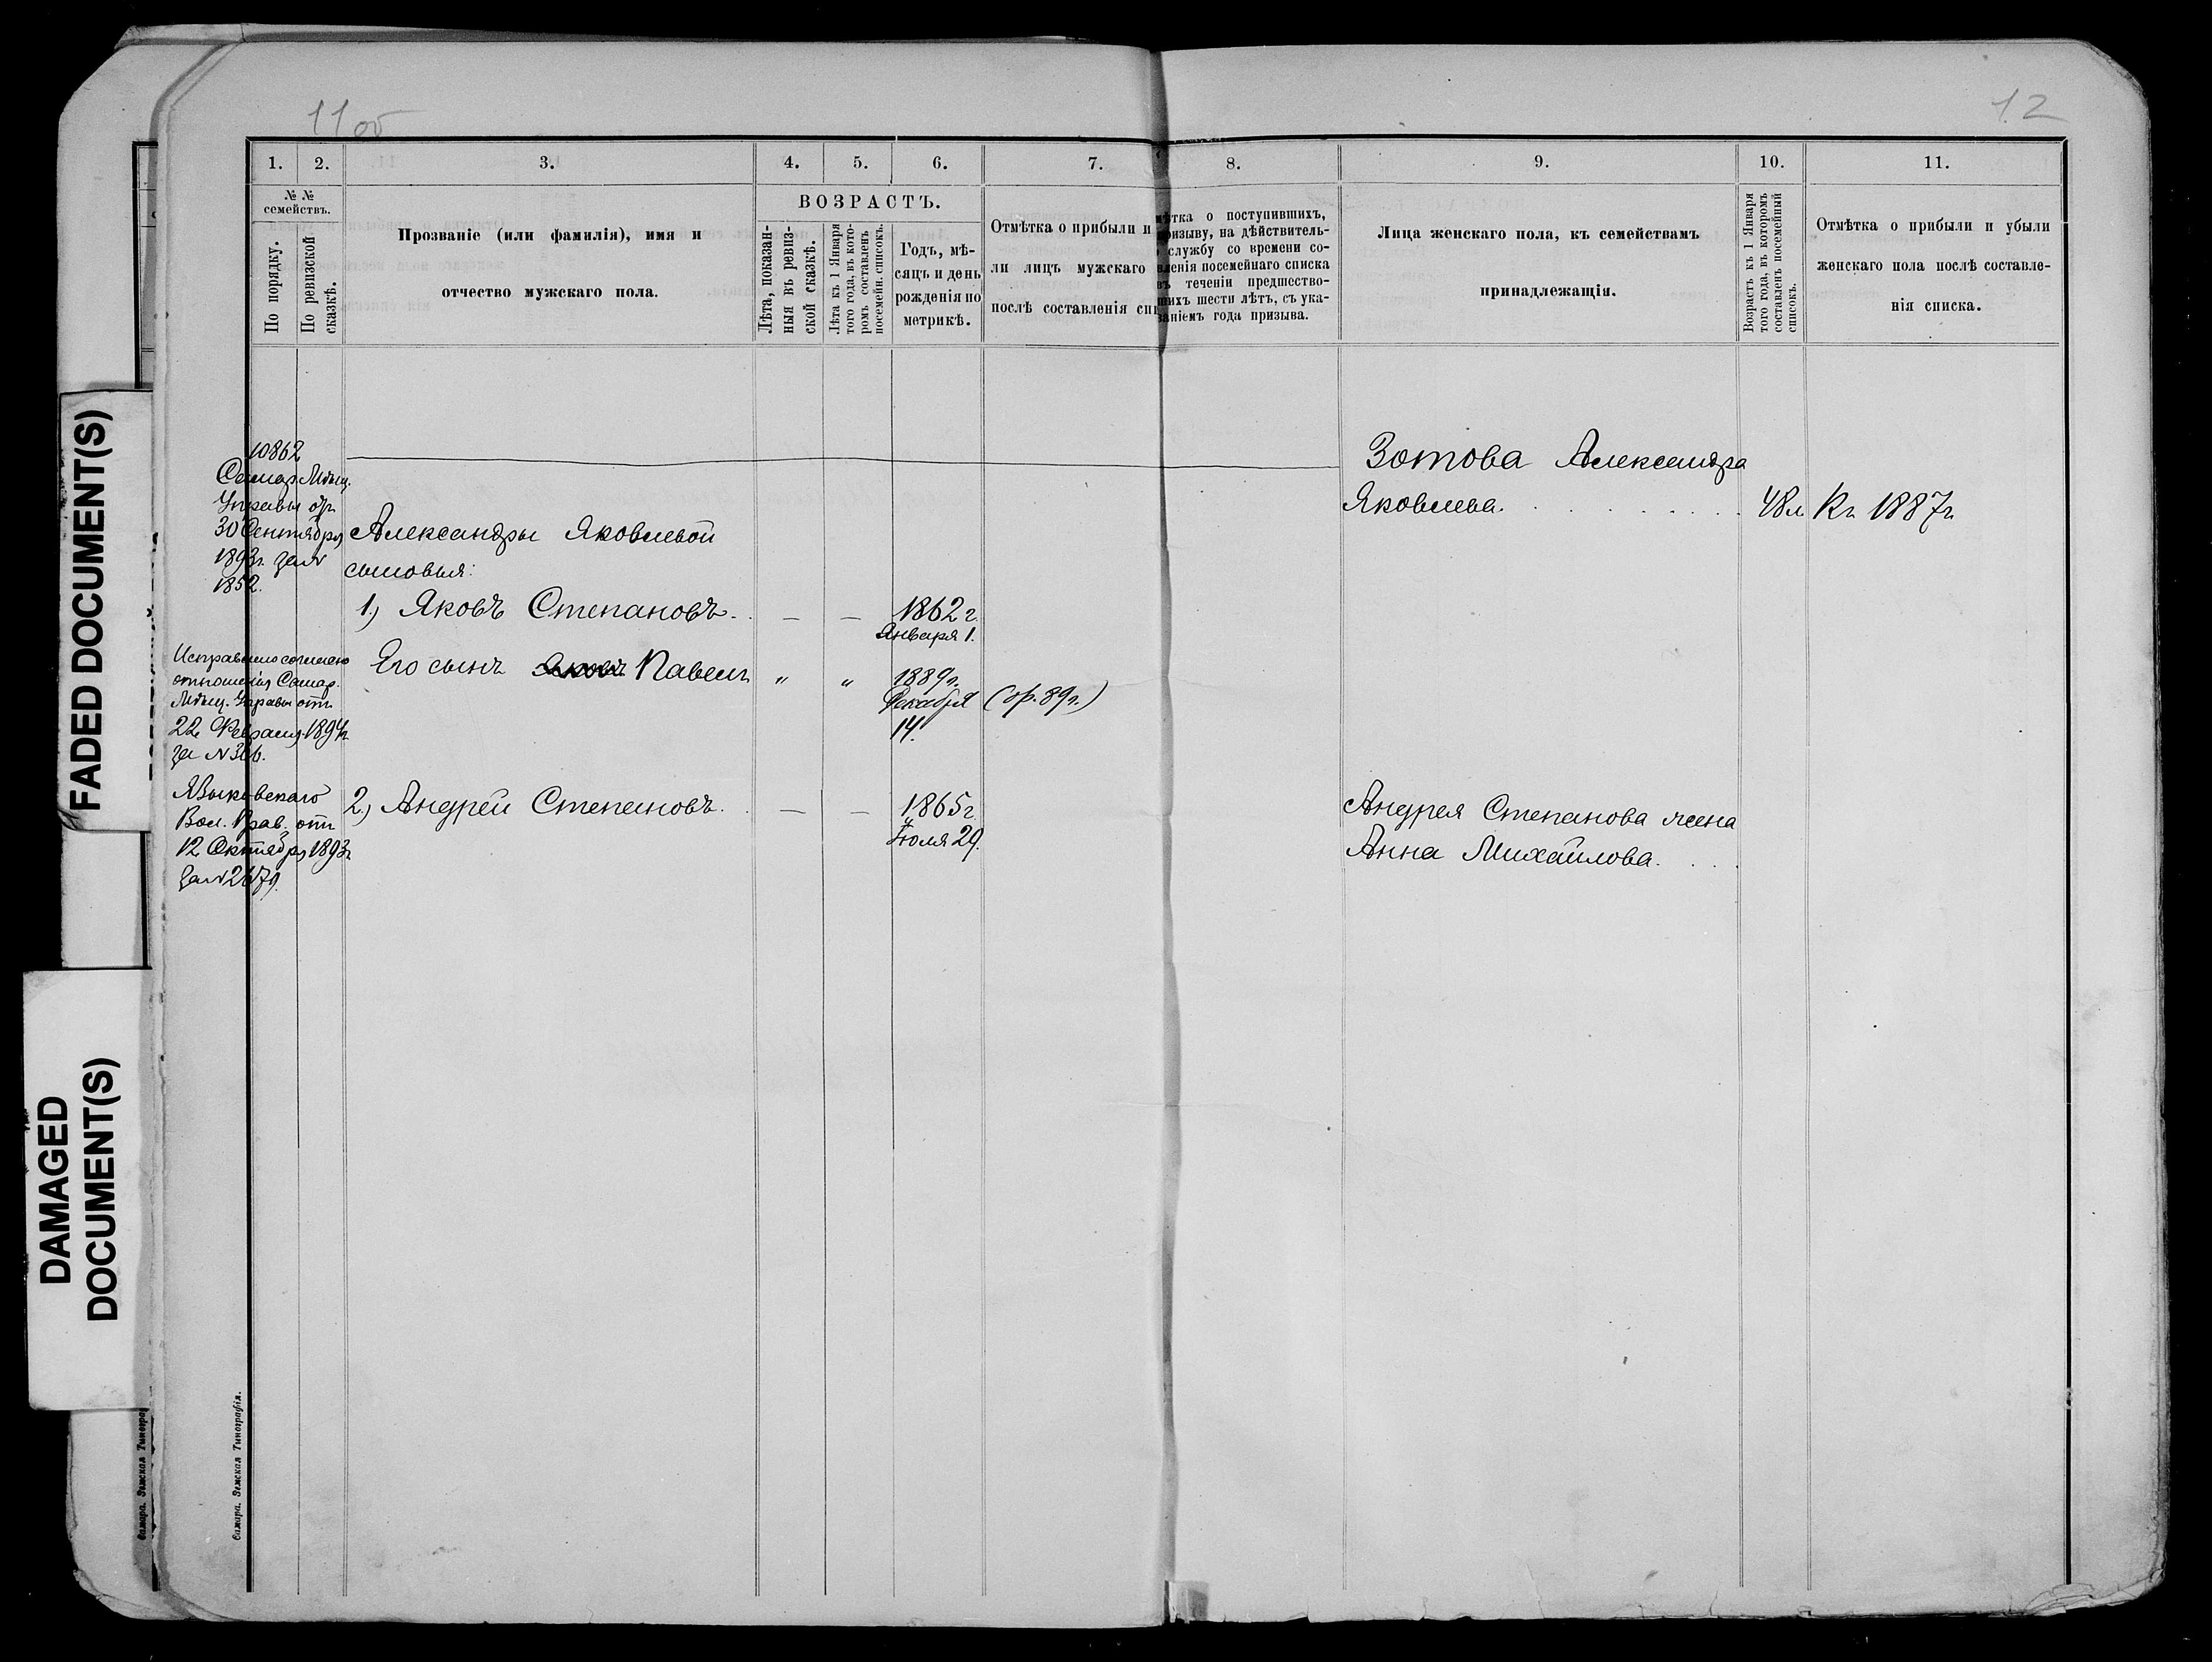 11 об
12
1.
2.
3.
4.
5.
6.
7.
8.
9.
10.
11.
№ №
семействъ.
По порядку.
По ревизской
сказкѣ.
Прозваніе (или фамилія), имя и
отчество мужскаго пола.
ВОЗРАСТЪ.
Лѣта, показан-
ныя въ ревиз-
ской сказкѣ.
Лѣта къ 1 Января
того года, въ кото-
ромъ составленъ
посемейн. списокъ.
Годъ, мѣ-
сяцъ и день
рожденія по
метрикѣ.
Отмѣтка о прибыли и
ли лицъ мужскаго
послѣ составленія спи
мѣтка о поступившихъ,
призыву, на дѣйствитель-
службу со времени со-
вленія посемейнаго списка
въ теченіи предшество-
шихъ шести лѣтъ, съ ука-
заніемъ года призыва.
Лица женскаго пола, къ семействамъ
принадлежащія.
Возрастъ къ 1 Января
того года, въ которомъ
составленъ посемейный
списокъ.
Отмѣтка о прибыли и убыли
женскаго пола послѣ составле-
нія списка.
10862
Самар. Мѣщ.
Управы отъ
30 Сентября
1893г. за №
1852.
Зотова Александра
Яковлева.
48л.
Къ 1887г.
Александры Яковлевой
сыновья:
1.) Яковъ Степановъ.
— — 1862 г.
Января 1.
Исправлено согласно
отношенія Самар.
Мѣщ. Управы отъ
22 Февраля 1894г.
за №
Его сынъ Яковъ Павелъ
" " 1889г.
Декабря
14.
(ор. 89г.)
Языковскаго
Вол. Прав. отъ
12 Октября 1893г.
за №
2.) Андрей Степановъ.
— — 1865г.
Іюля 29.
Андрея Степанова жена
Анна Михайлова.
Самара. Земская Типографія.
Самара. Земская Типогра
FADED DOCUMENT(S)
DAMAGED
DOCUMENT(S)